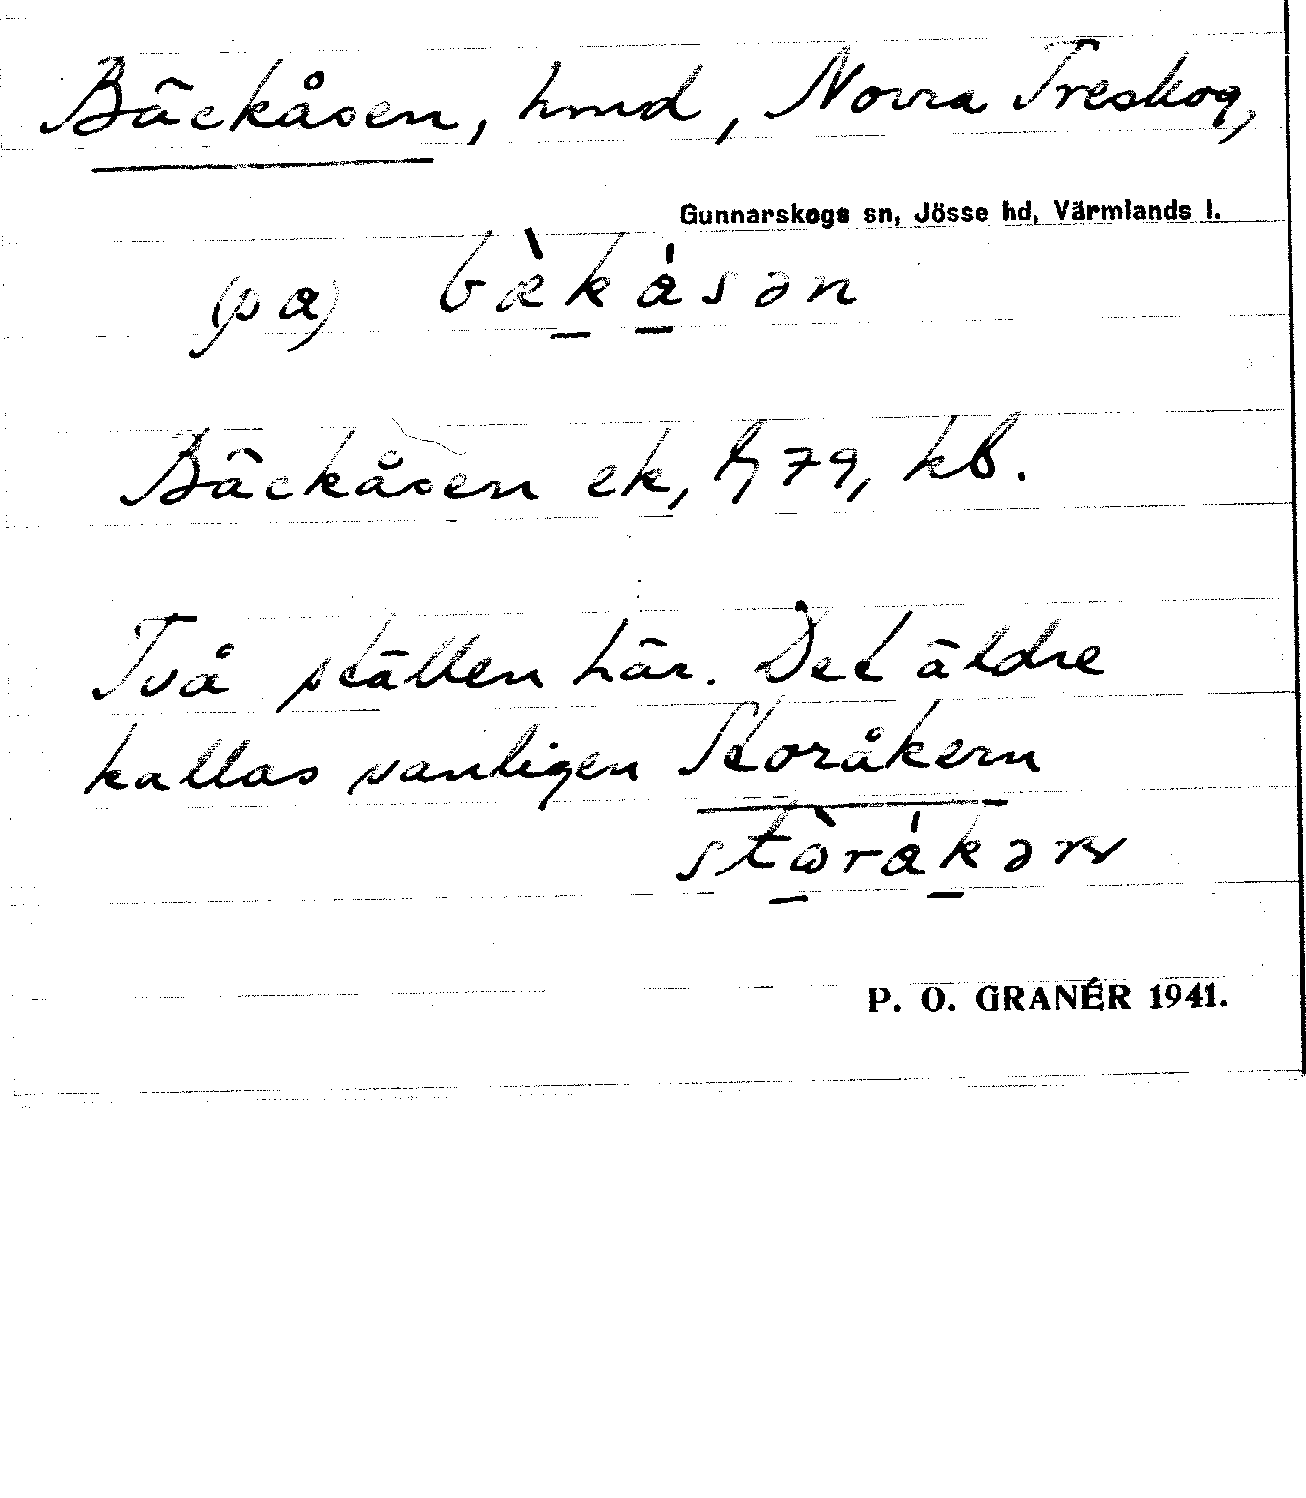 Bäckåsen, hmd, Norra Treskog,
Gunnarskogs sn, Jösse hd, Värmlands l.
(pa) bæ̀kåsən
Bäckåsen ek, h 79, kb.
Två ställen här. Det äldre
kallas vanligen Storåkern
stòråkərn
P. O. GRANÉR 1941.